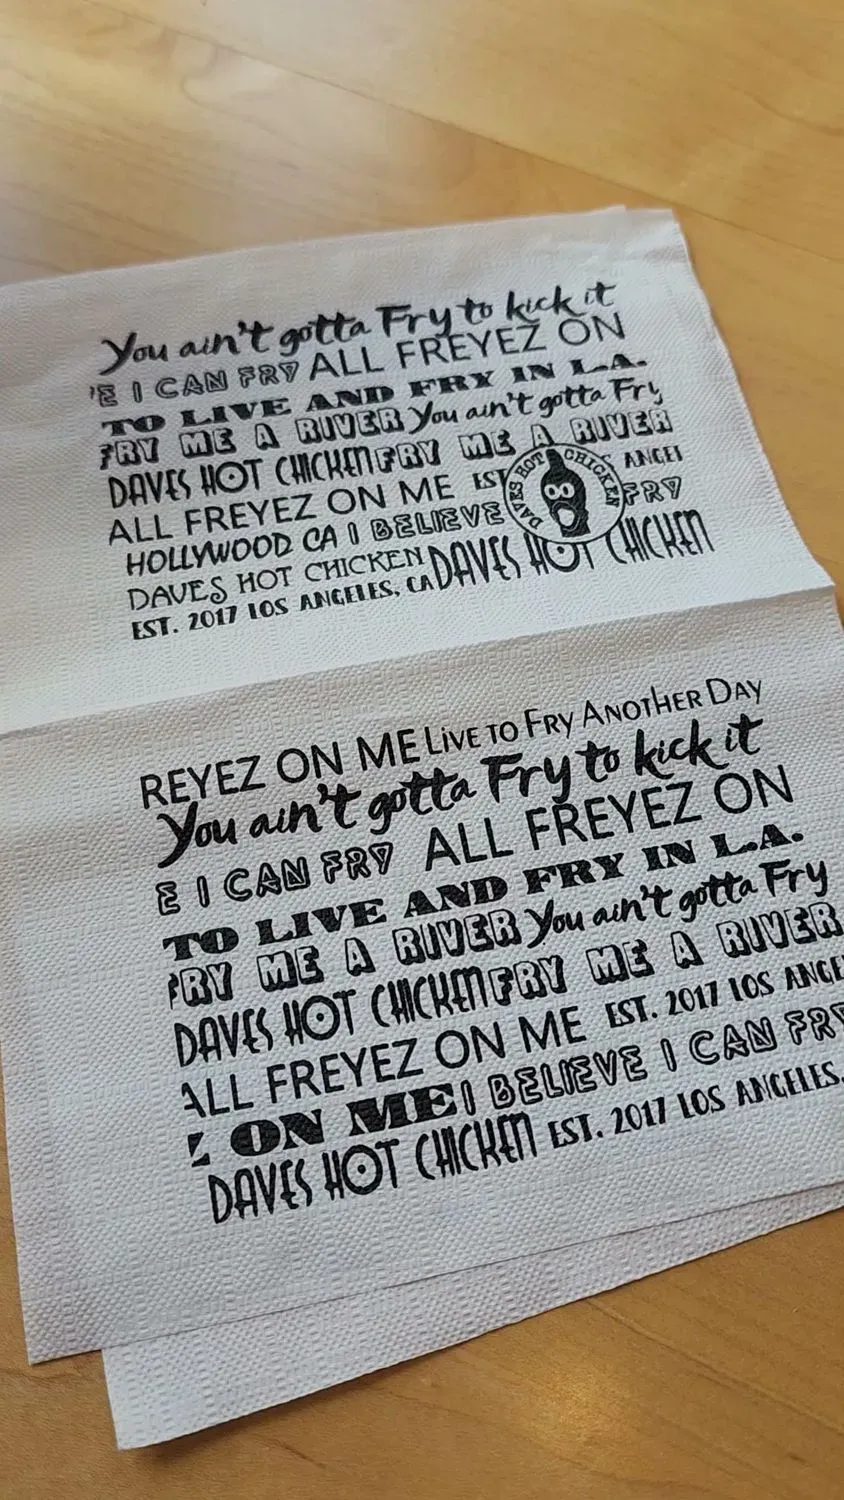 You ain't gotta Fry to kick it
'E I CAN FRY ALL FREYEZ ON
TO LIVE AND FRY IN L.A.
FRY ME A RIVER You ain't gotta Fry
DAVES HOT CHICKEN FRY ME A RIVER
ALL FREYEZ ON ME EST ANGEL
HOLLYWOOD CA I BELIEVE FRY
DAVES HOT CHICKEN DAVES HOT CHICKEN
EST. 2017 LOS ANGELES, CA
DAVES HOT CHICKEN
REYEZ ON ME LIVE TO FRY ANOTHER DAY
You ain't gotta Fry to kick it
E I CAN FRY ALL FREYEZ ON
TO LIVE AND FRY IN L.A.
FRY ME A RIVER You ain't gotta Fry
DAVES HOT CHICKEN FRY ME A RIVER
ALL FREYEZ ON ME EST. 2017 LOS ANGE
Z ON ME I BELIEVE I CAN FRY
DAVES HOT CHICKEN EST. 2017 LOS ANGELES,